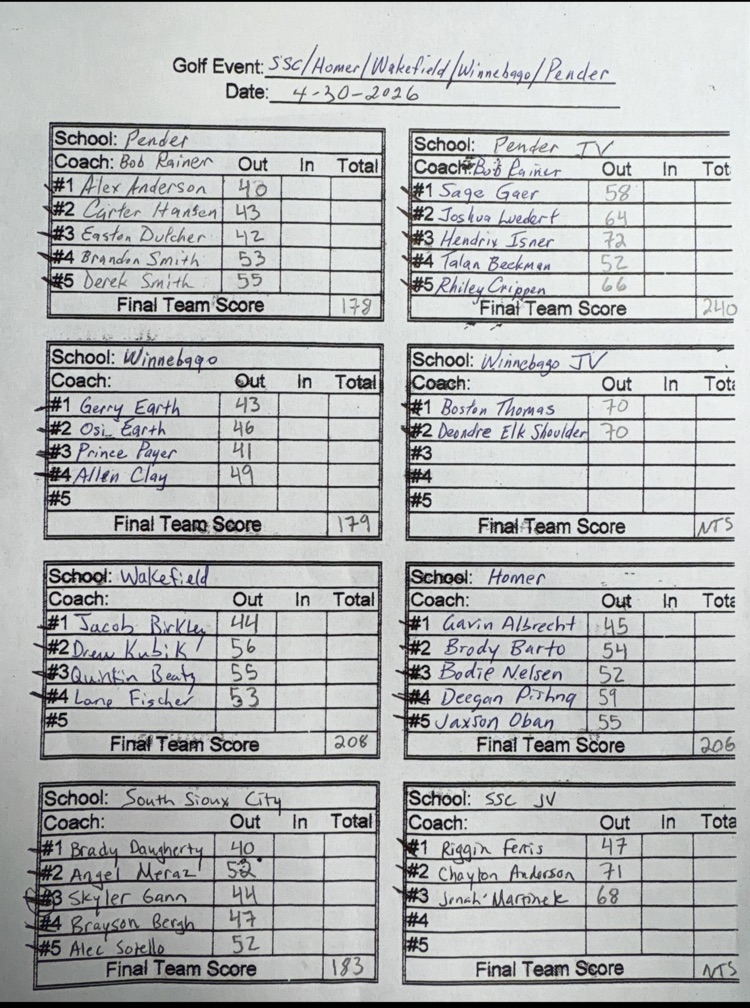 Golf Event: SSC/Homer/Wakefield/Winnebago/Pender
Date: 4-30-2026
School: Pender
Coach: Bob Rainer Out In Total
#1 Alex Anderson 40
#2 Carter Hansen 43
#3 Easton Dutcher 42
#4 Brandon Smith 53
#5 Derek Smith 55
Final Team Score 178
School: Pender JV
Coach: Bob Rainer Out In Tot
#1 Sage Gaer 58
#2 Joshua Luedert 64
#3 Hendrix Isner 72
#4 Talan Beckman 52
#5 Rhiley Crippen 66
Final Team Score 240
School: Winnebago
Coach: Out In Total
#1 Gerry Earth 43
#2 Osi Earth 46
#3 Prince Payer 41
#4 Allen Clay 49
#5
Final Team Score 179
School: Winnebago JV
Coach: Out In Tota
#1 Boston Thomas 70
#2 Deondre Elk Shoulder 70
#3
#4
#5
Final Team Score NTS
School: Wakefield
Coach: Out In Total
#1 Jacob Birkley 44
#2 Drew Kubik 56
#3 Quintin Beatz 55
#4 Lane Fischer 53
#5
Final Team Score 208
School: Homer
Coach: Out In Tota
#1 Gavin Albrecht 45
#2 Brody Barto 54
#3 Bodie Nelsen 52
#4 Deegan 59
#5 Jaxson Oban 55
Final Team Score 206
School: South Sioux City
Coach: Out In Total
#1 Brady Daugherty 40
#2 Angel Meraz 52
#3 Skyler Gann 44
#4 Brayson Bergh 47
#5 Alec Sotello 52
Final Team Score 183
School: SSC JV
Coach: Out In Tota
#1 Riggin Ferris 47
#2 Chaylon Anderson 71
#3 Jonah Martinek 68
#4
#5
Final Team Score NTS